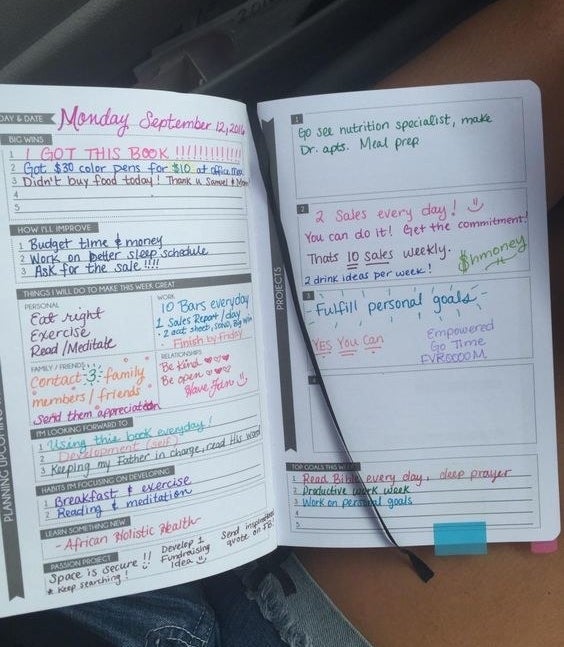 DAY & DATE Monday September 12, 2016
BIG WINS
1 I GOT THIS BOOK !!!!!!!!!!!!!
2 Got $30 color pens for $10 at office max
3 Didn't buy food today! Thank u Samuel & Mom
4
5
HOW I'LL IMPROVE
1 Budget time & money
2 Work on better sleep schedule
3 Ask for the sale !!!!
THINGS I WILL DO TO MAKE THIS WEEK GREAT
PERSONAL
Eat right
Exercise
Read/Meditate
WORK
10 Bars everyday
1 Sales Report/day
Finish by Friday
FAMILY / FRIENDS
Contact 3 family
members / friends
Send them appreciation
RELATIONSHIPS
Be kind ♡♡♡
Be open
Have fun
I'M LOOKING FORWARD TO
1 Using this book everyday!
2 Development (self)
3 Keeping my Father in charge, read His word
HABITS I'M FOCUSING ON DEVELOPING
1 Breakfast & exercise
2 Reading & meditation
LEARN SOMETHING NEW
- African Holistic Health
PASSION PROJECT
Space is secure !!
* Keep searching!
Develop 1
Fundraising
Idea
Send
quote on
PLANNING UPCOMING
PROJECTS
1
Go see nutrition specialist, make
Dr. apts. Meal prep
2
2 Sales every day!
You can do it! Get the commitment!
Thats 10 sales weekly.
$hmoney
2 drink ideas per week!
3
Fulfill personal goals
YES YOU Can
Empowered
Go Time
FVROOOOM
4
TOP GOALS THIS WEEK
1 Read Bible every day, deep prayer
2 Productive work week
3 Work on personal goals
5